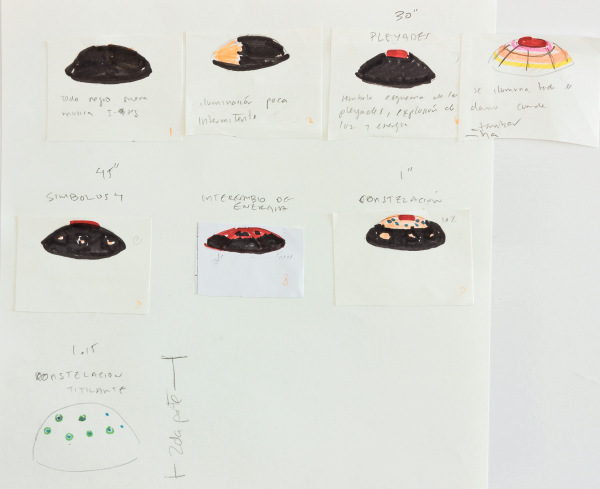 30"
PLEYADES
Todo negro suena
musica
1
iluminación poca
intermitente
2
simbolo esquema de la
pleyades, explosión de
luz y energia
se ilumina todo el
domo cuando
45"
SIMBOLOS 4
INTERCAMBIO DE
ENERGIA
8
1"
CONSTELACIÓN
1.15
CONSTELACION
TITILANTE
2da parte